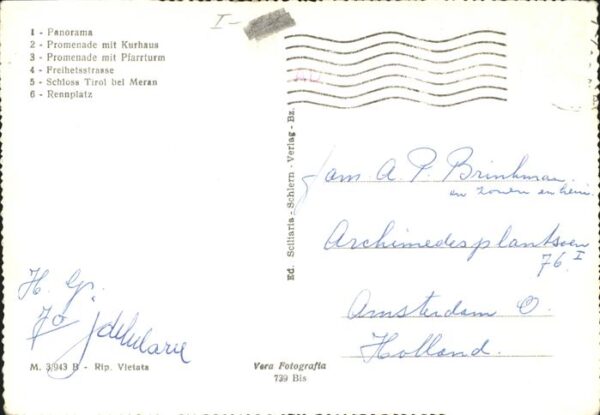 I-
1 - Panorama
2 - Promenade mit Kurhaus
3 - Promenade mit Pfarrturm
4 - Freiheitsstrasse
5 - Schloss Tirol bei Meran
6 - Rennplatz
H. Gr.
Jo
M. 3/943 B - Rip. Vietata
Ed. Sciliaria - Schlern - Verlag - Bz.
Vera Fotografia
739 Bis
Fam. A. P. Brinkman.
en zonen en
Archimedesplantsoen
76 I
Amsterdam O.
Holland.